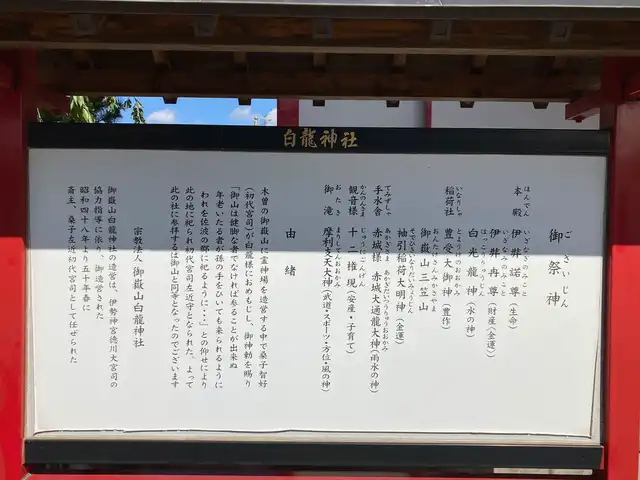 白龍神社
御祭神
ごさいじん
本殿 伊弉諾尊(生命)
ほんでん いざなぎのみこと
伊弉冉尊(財産(金運))
いざなみのみこと
白光龍神(水の神)
はっこうりゅうじん
稲荷社 豊受大御神(豊作)
いなりしゃ とようけのおおかみ
御嶽山三笠山
おんたけさんみかさやま
袖引稲荷大明神(金運)
そでひきいなりだいみょうじん
手水舎 赤城様 赤城大通龍大神(雨水の神)
てみずしゃ あかぎさま
観音様 十一権現(安産・子育て)
かんのんさま
御滝 摩利支天大神(武道・スポーツ・方位・風の神)
おたき まりしてんおおかみ
由緒
木曽の御嶽山に霊神場を造営する中で桑子智好
(初代宮司)が白龍様におめもじし、御神勅を賜り
「御山は健脚な者でなければ参ることが出来ぬ
年老いたる者が孫の手をひいても来られるように
われを佐波の郡に祀るように・・・」との仰せにより
此の地に祀られ初代宮司左近守となられた。よって
此の社に参拝するは御山と同等となったのでございます
宗教法人 御嶽山白龍神社
御嶽山白龍神社の造営は、伊勢神宮徳川大宮司の
協力指導に依り、御造営された
昭和四十八年より五十年春に
斎主、桑子左近初代宮司として任ぜられた